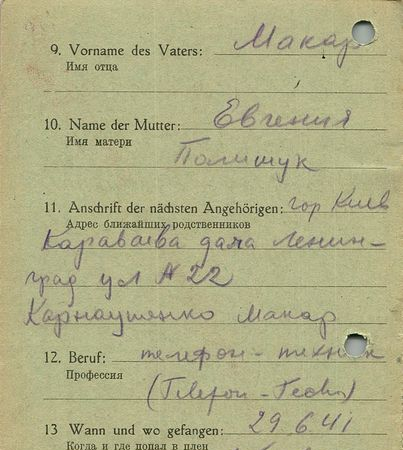 9. Vorname des Vaters: Макар
Имя отца
10. Name der Mutter: Евгения
Имя матери
Полищук
11. Anschrift der nächsten Angehörigen: гор Киев
Адрес ближайших родственников
Караваева дача Ленин-
град ул № 22
Карнаушенко Макар
12. Beruf: телефон-техник.
Профессия
(Telefon-Techn)
13 Wann und wo gefangen: 29.6.41
Когда и где попал в плен